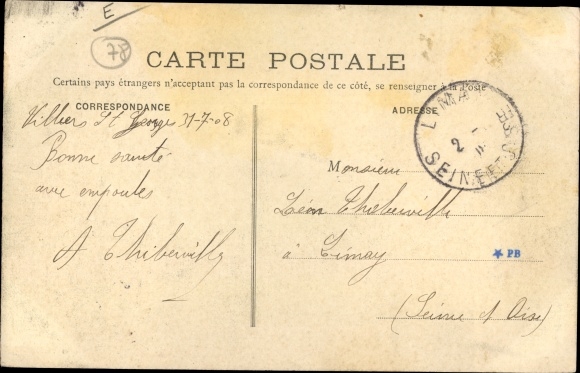 E
78
CARTE POSTALE
Certains pays étrangers n'acceptant pas la correspondance de ce côté, se renseigner à la Poste
CORRESPONDANCE
Villiers St Georges 31-7-08
Bonne santé
avec ampoules
A Thiberville
ADRESSE
LIMAY
2
SEINE-ET-
Monsieur
Léon Thiberville
à Limay
(Seine et Oise)
PB